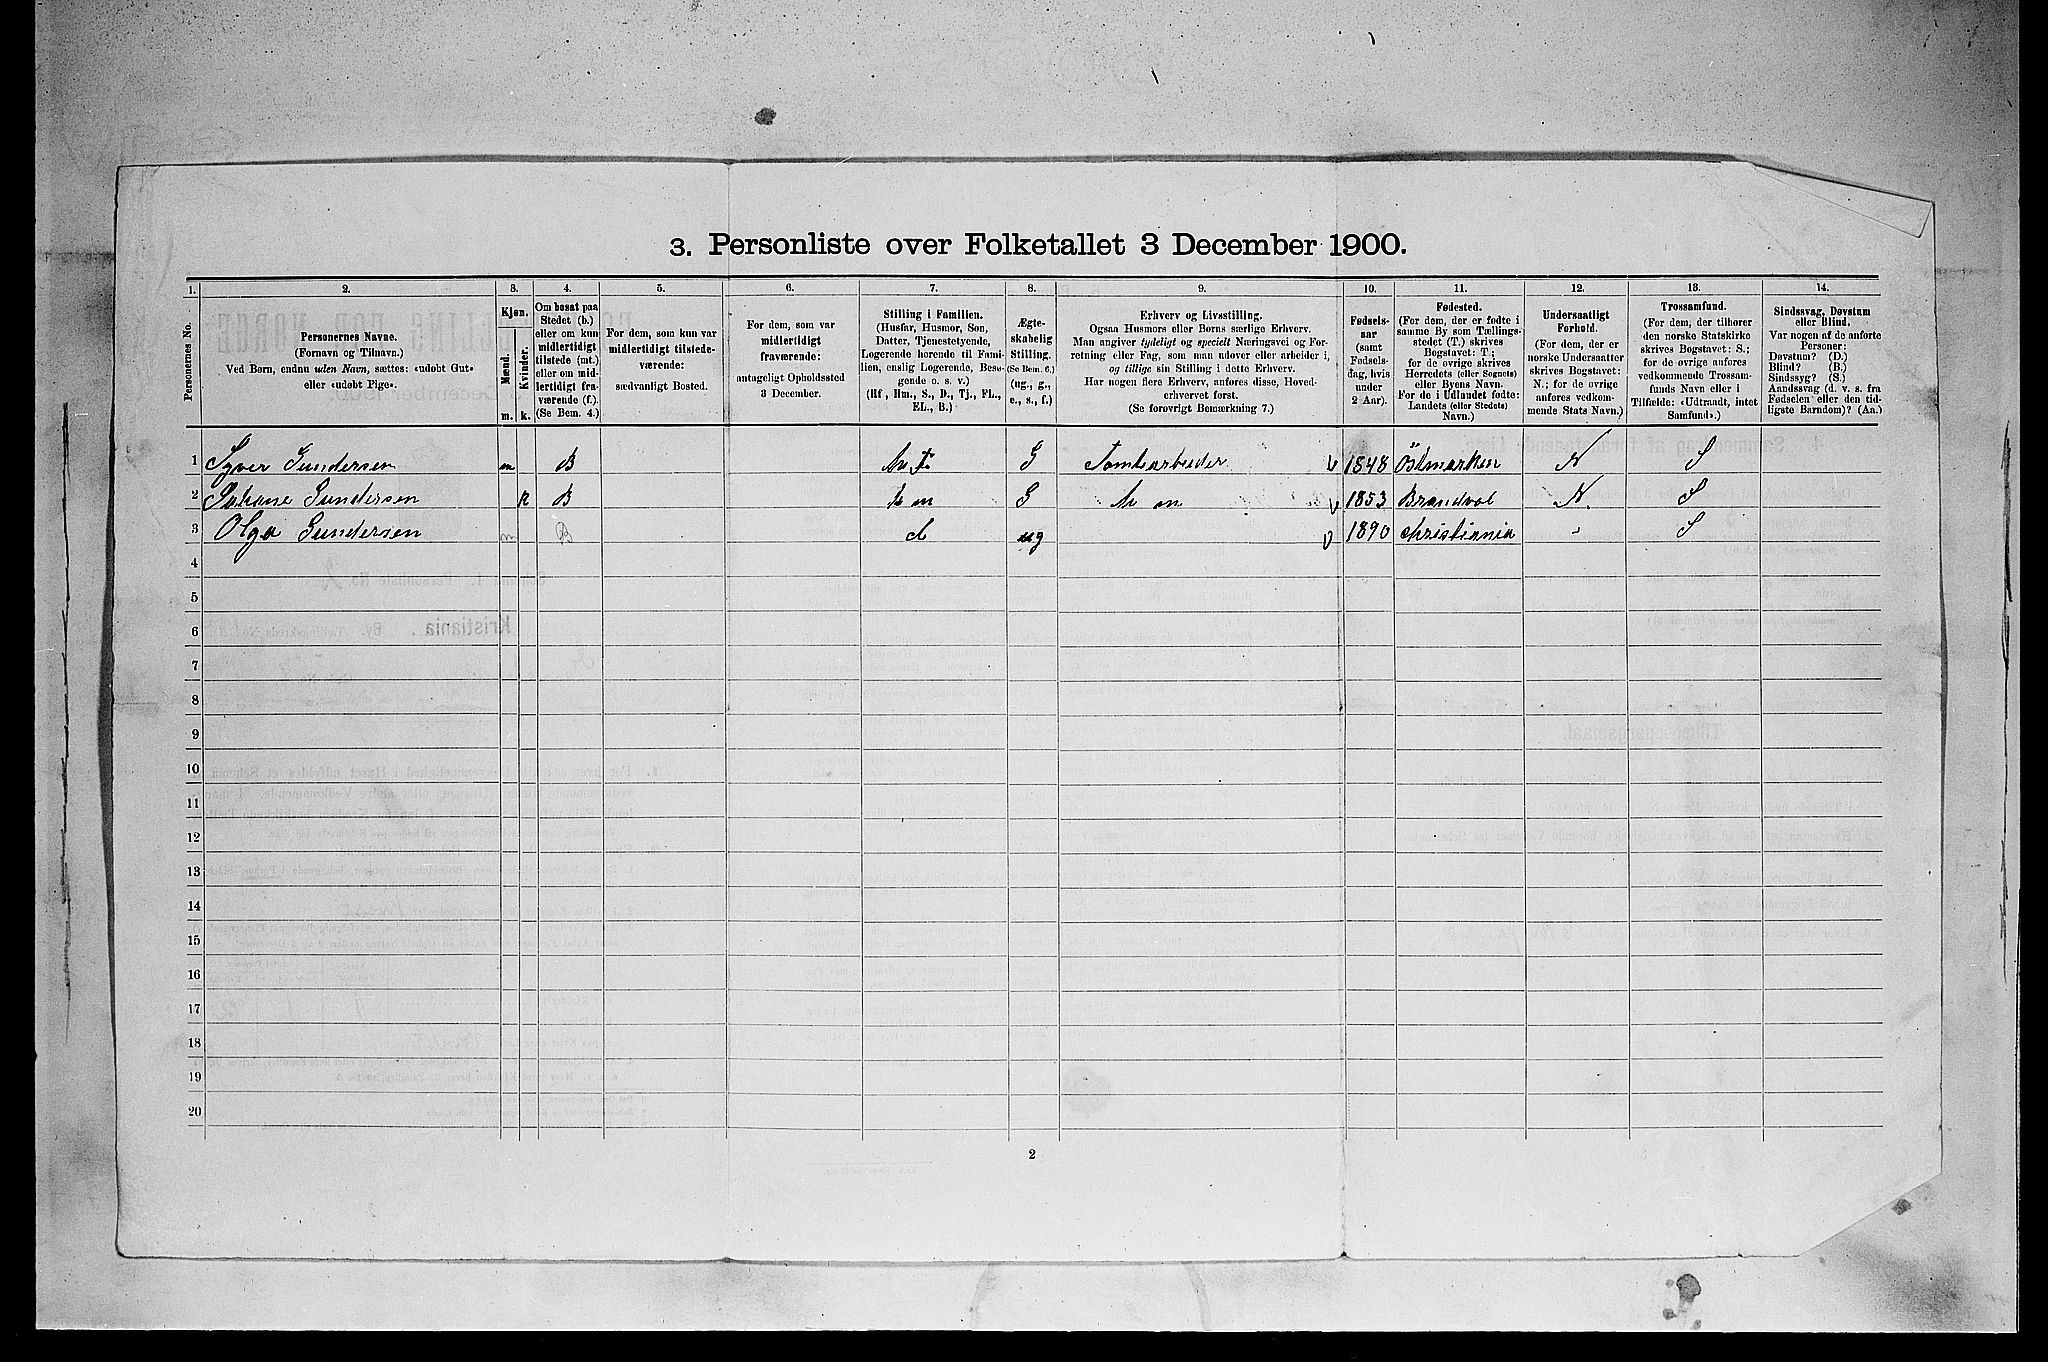 3. Personliste over Folketallet 3 December 1900.
1. 2. 3. 4. 5. 6. 7. 8. 9. 10. 11. 12. 13. 14.
Personernes No.
Personernes Navne.
(Fornavn og Tilnavn.)
Ved Børn, endnu uden Navn, sættes: «udøbt Gut»
eller «udøbt Pige».
Kjøn.
Mænd.
Kvinder.
m. k.
Om bosat paa
Stedet (b.)
eller om kun
midlertidigt
tilstede (mt.)
eller om mid-
lertidigt fra-
værende (f.).
(Se Bem. 4.)
For dem, som kun var
midlertidigt tilstede-
værende:
sædvanligt Bosted.
For dem, som var
midlertidigt
fraværende:
antageligt Opholdssted
3 December.
Stilling i Familien.
(Husfar, Husmor, Søn,
Datter, Tjenestetyende,
Logerende hørende til Fami-
lien, enslig Logerende, Besø-
gende o. s. v.)
(Hf., Hm., S., D., Tj., FL.,
EL., B.)
Ægte-
skabelig
Stilling.
(Se Bem. 6.)
(ug., g.,
e., s., f.)
Erhverv og Livsstilling.
Ogsaa Husmors eller Børns særlige Erhverv.
Man angiver tydeligt og specielt Næringsvei og For-
retning eller Fag, som man udøver eller arbeider i,
og tillige sin Stilling i dette Erhverv.
Har nogen flere Erhverv, anføres disse, Hoved-
erhvervet først.
(Se forøvrigt Bemærkning 7.)
Fødsels-
aar
(samt
Fødsels-
dag, hvis
under
2 Aar).
Fødested.
(For dem, der er fødte i
samme By som Tællings-
stedet (T.) skrives
Bogstavet: T;
for de øvrige skrives
Herredets (eller Sognets)
eller Byens Navn.
For de i Udlandet fødte:
Landets (eller Stedets)
Navn.)
Undersaatligt
Forhold.
(For dem, der er
norske Undersaatter
skrives Bogstavet:
N.; for de øvrige
anføres vedkom-
mende Stats Navn.)
Trossamfund.
(For dem, der tilhører
den norske Statskirke
skrives Bogstavet: S.;
for de øvrige anføres
vedkommende Trossam-
funds Navn eller i
Tilfælde: «Udtraadt, intet
Samfund».)
Sindssvag, Døvstum
eller Blind.
Var nogen af de anførte
Personer:
Døvstum? (D.)
Blind? (B.)
Sindssyg? (S.)
Aandssvag (d. v. s. fra
Fødselen eller den tid-
ligste Barndom)? (Aa.)
1 Syver Gundersen m B G Tomtearbeider 1848 Östmarken N S
2 Johane Gundersen k B hm G hm 1853 Brandvol N. S
3 Olga Gundersen B d ug 1890 Christiania " S
4
5
6
7
8
9
10
11
12
13
14
15
16
17
18
19
20
2